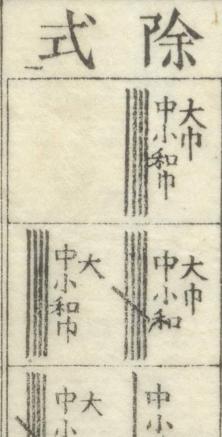 除式
大巾
中小和巾
大巾
中小和
大
中小和巾
中小
大
中小